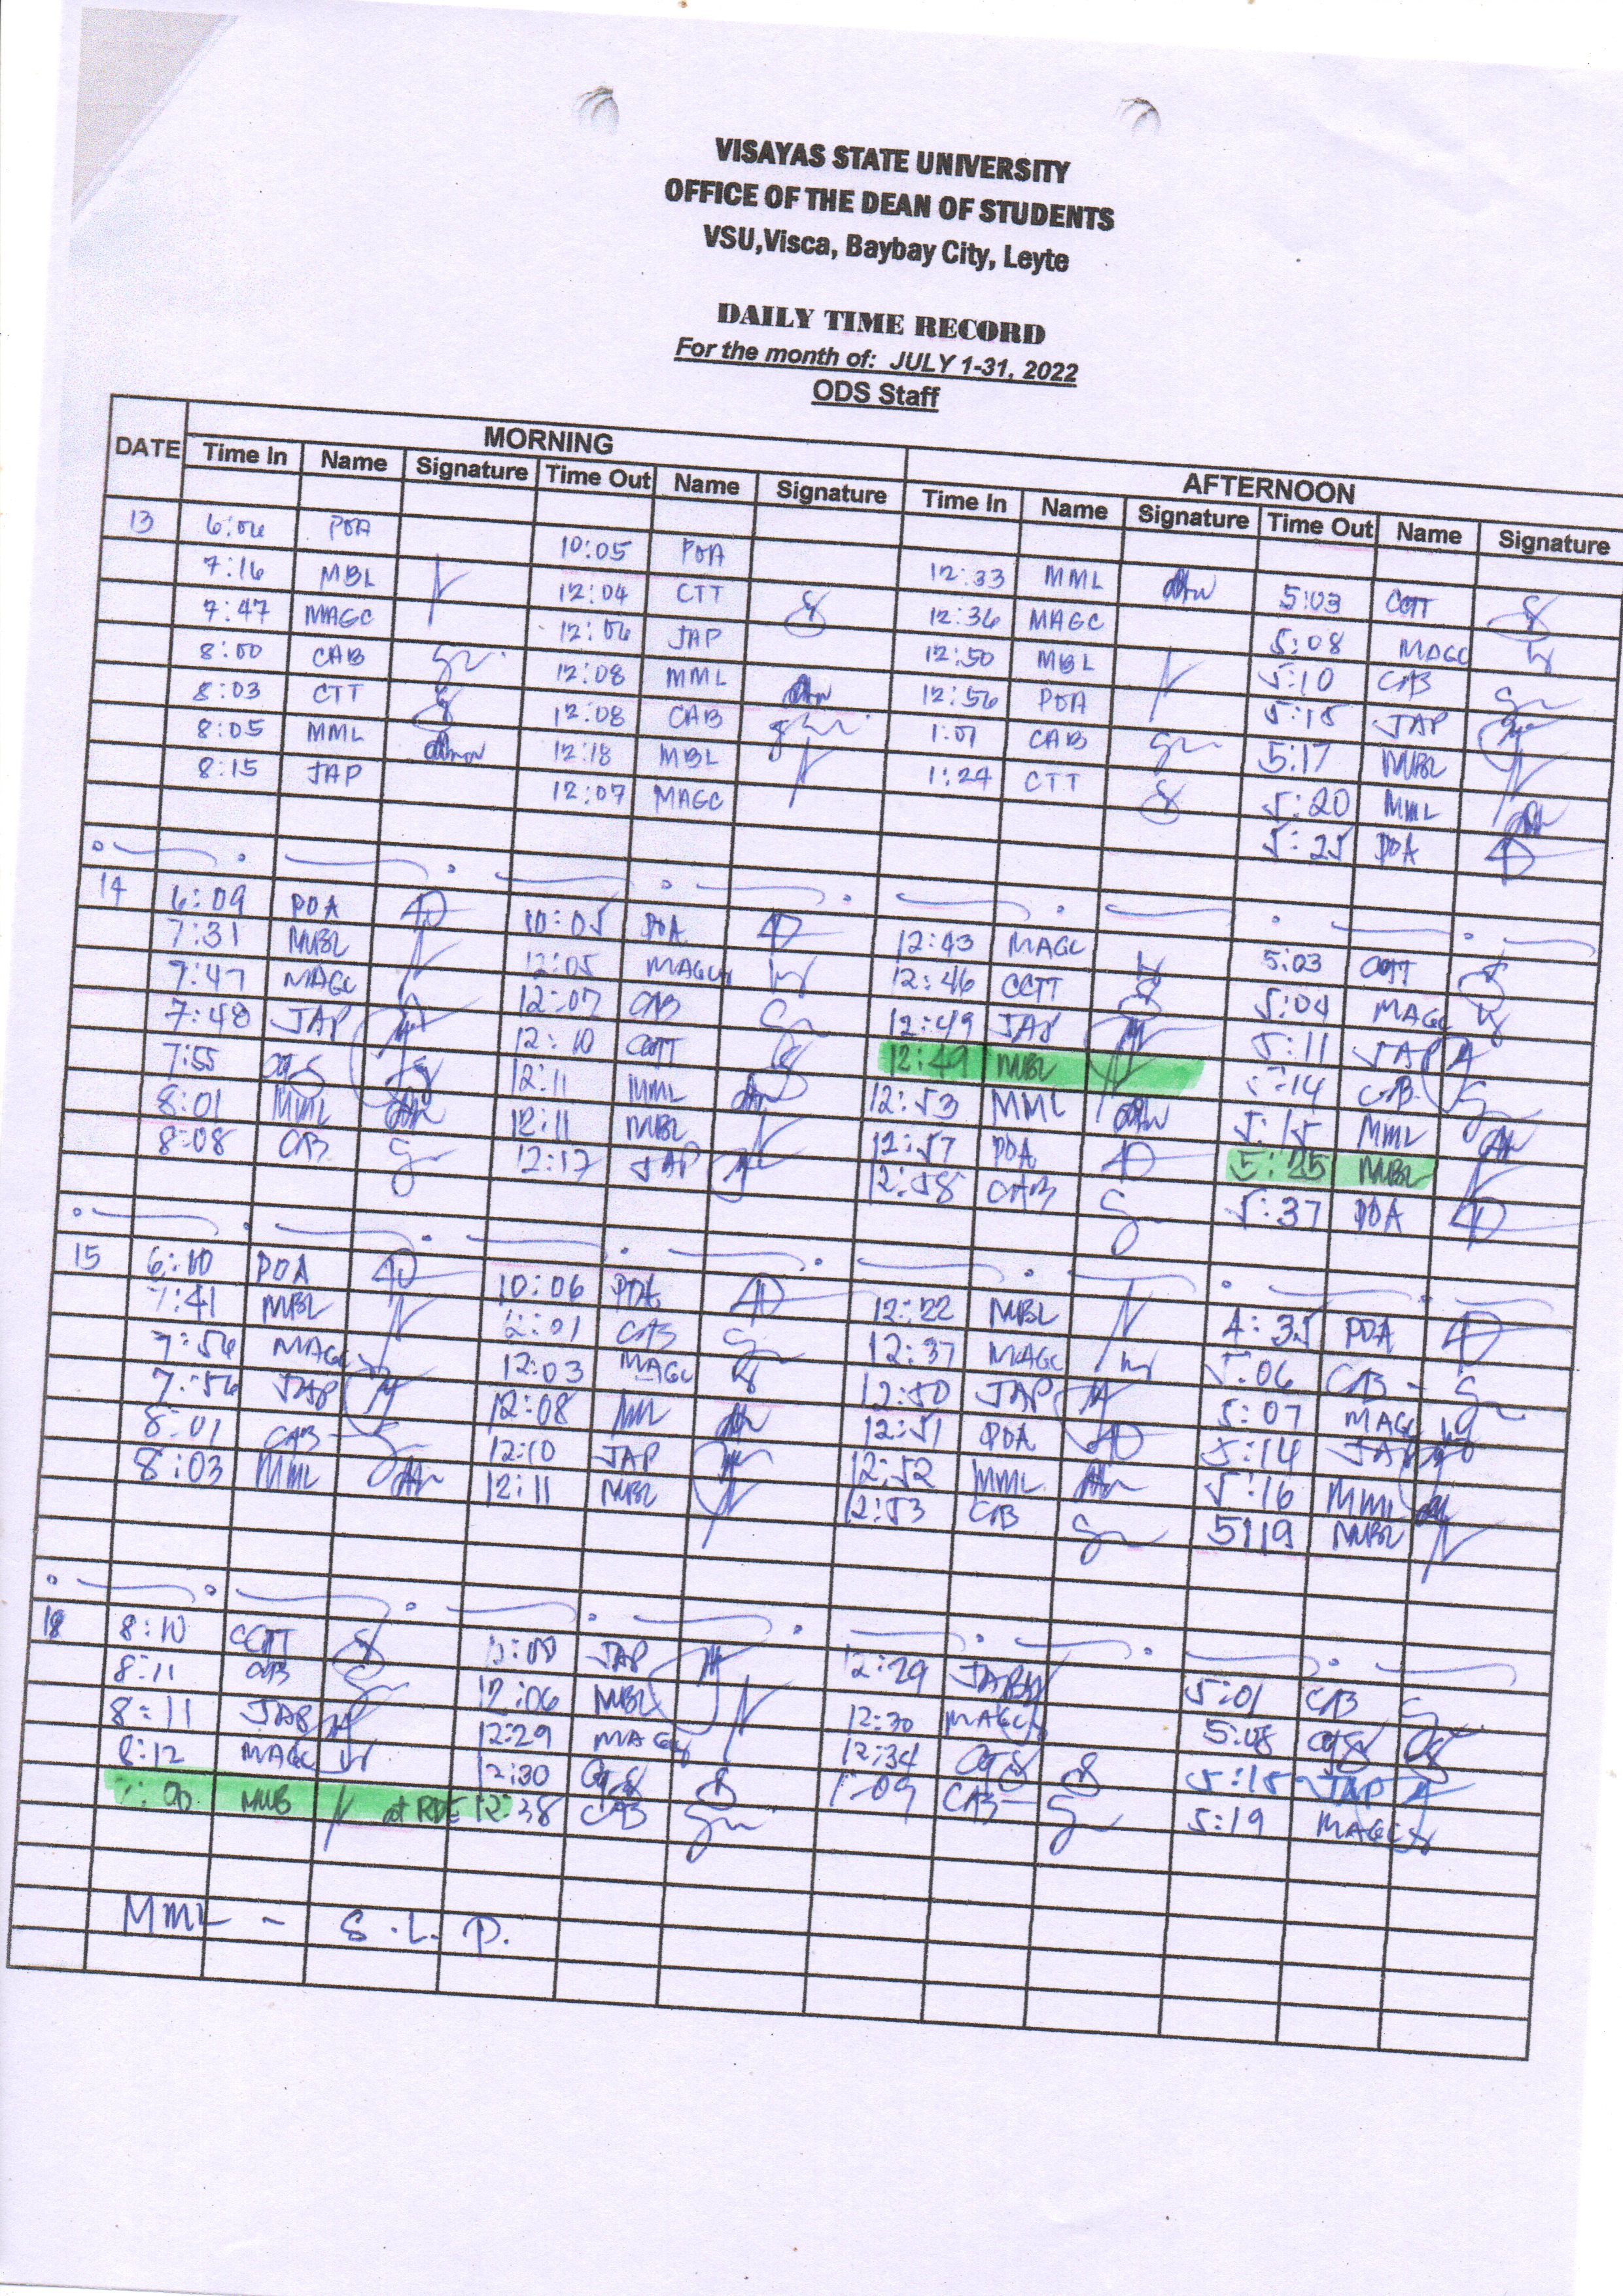 VISAYAS STATE UNIVERSITY
OFFICE OF THE DEAN OF STUDENTS
VSU,Visca, Baybay City, Leyte
DAILY TIME RECORD
For the month of: JULY 1-31, 2022
ODS Staff
DATE MORNING AFTERNOON
Time In Name Signature Time Out Name Signature Time In Name Signature Time Out Name Signature
13 6:06 POA 10:05 POA 12:33 MML 5:03 CTT
7:16 MBL 12:04 CTT 12:36 MAGC 5:08 MAGC
7:47 MAGC 12:06 JAP 12:50 MBL 5:10 CAB
8:00 CAB 12:08 MML 12:56 POA 5:15 JAP
8:03 CTT 12:08 CAB 1:01 CAB 5:17 MBL
8:05 MML 12:18 MBL 1:24 CTT 5:20 MML
8:15 JAP 12:07 MAGC 5:25 POA
14 6:09 POA 10:05 POA 12:43 MAGC 5:03 CCTT
7:31 MBL 12:05 MAGC 12:46 CCTT 5:04 MAGC
7:47 MAGC 12:07 CAB 12:49 JAP 5:11 JAP
7:48 JAP 12:10 CCTT 12:49 MBL 5:14 CAB
7:55 12:11 MML 12:53 MML 5:15 MML
8:01 MML 12:11 MBL 12:57 POA 5:25 MBL
8:08 CAB 12:17 JAP 12:58 CAB 5:37 POA
15 6:10 POA 10:06 POA 12:22 MBL 4:35 POA
7:41 MBL 12:01 CAB 12:37 MAGC 5:06 CAB
7:56 MAGC 12:03 MAGC 12:50 JAP 5:07 MAGC
7:56 JAP 12:08 MML 12:51 POA 5:14 JAP
8:01 CAB 12:10 JAP 12:52 MML 5:16 MML
8:03 MML 12:11 MBL 12:53 CAB 5:19 MBL
18 8:10 CCTT JAP 12:29 JAP 5:01 CAB
8:11 CAB 12:06 MBL 12:30 MAGC 5:08
8:11 JAP 12:29 MAGC 12:34 5:15 JAP
8:12 MAGC 12:30 1:09 CAB 5:19 MAGC
at RDE 12:38 CAB
MML - S.L.P.